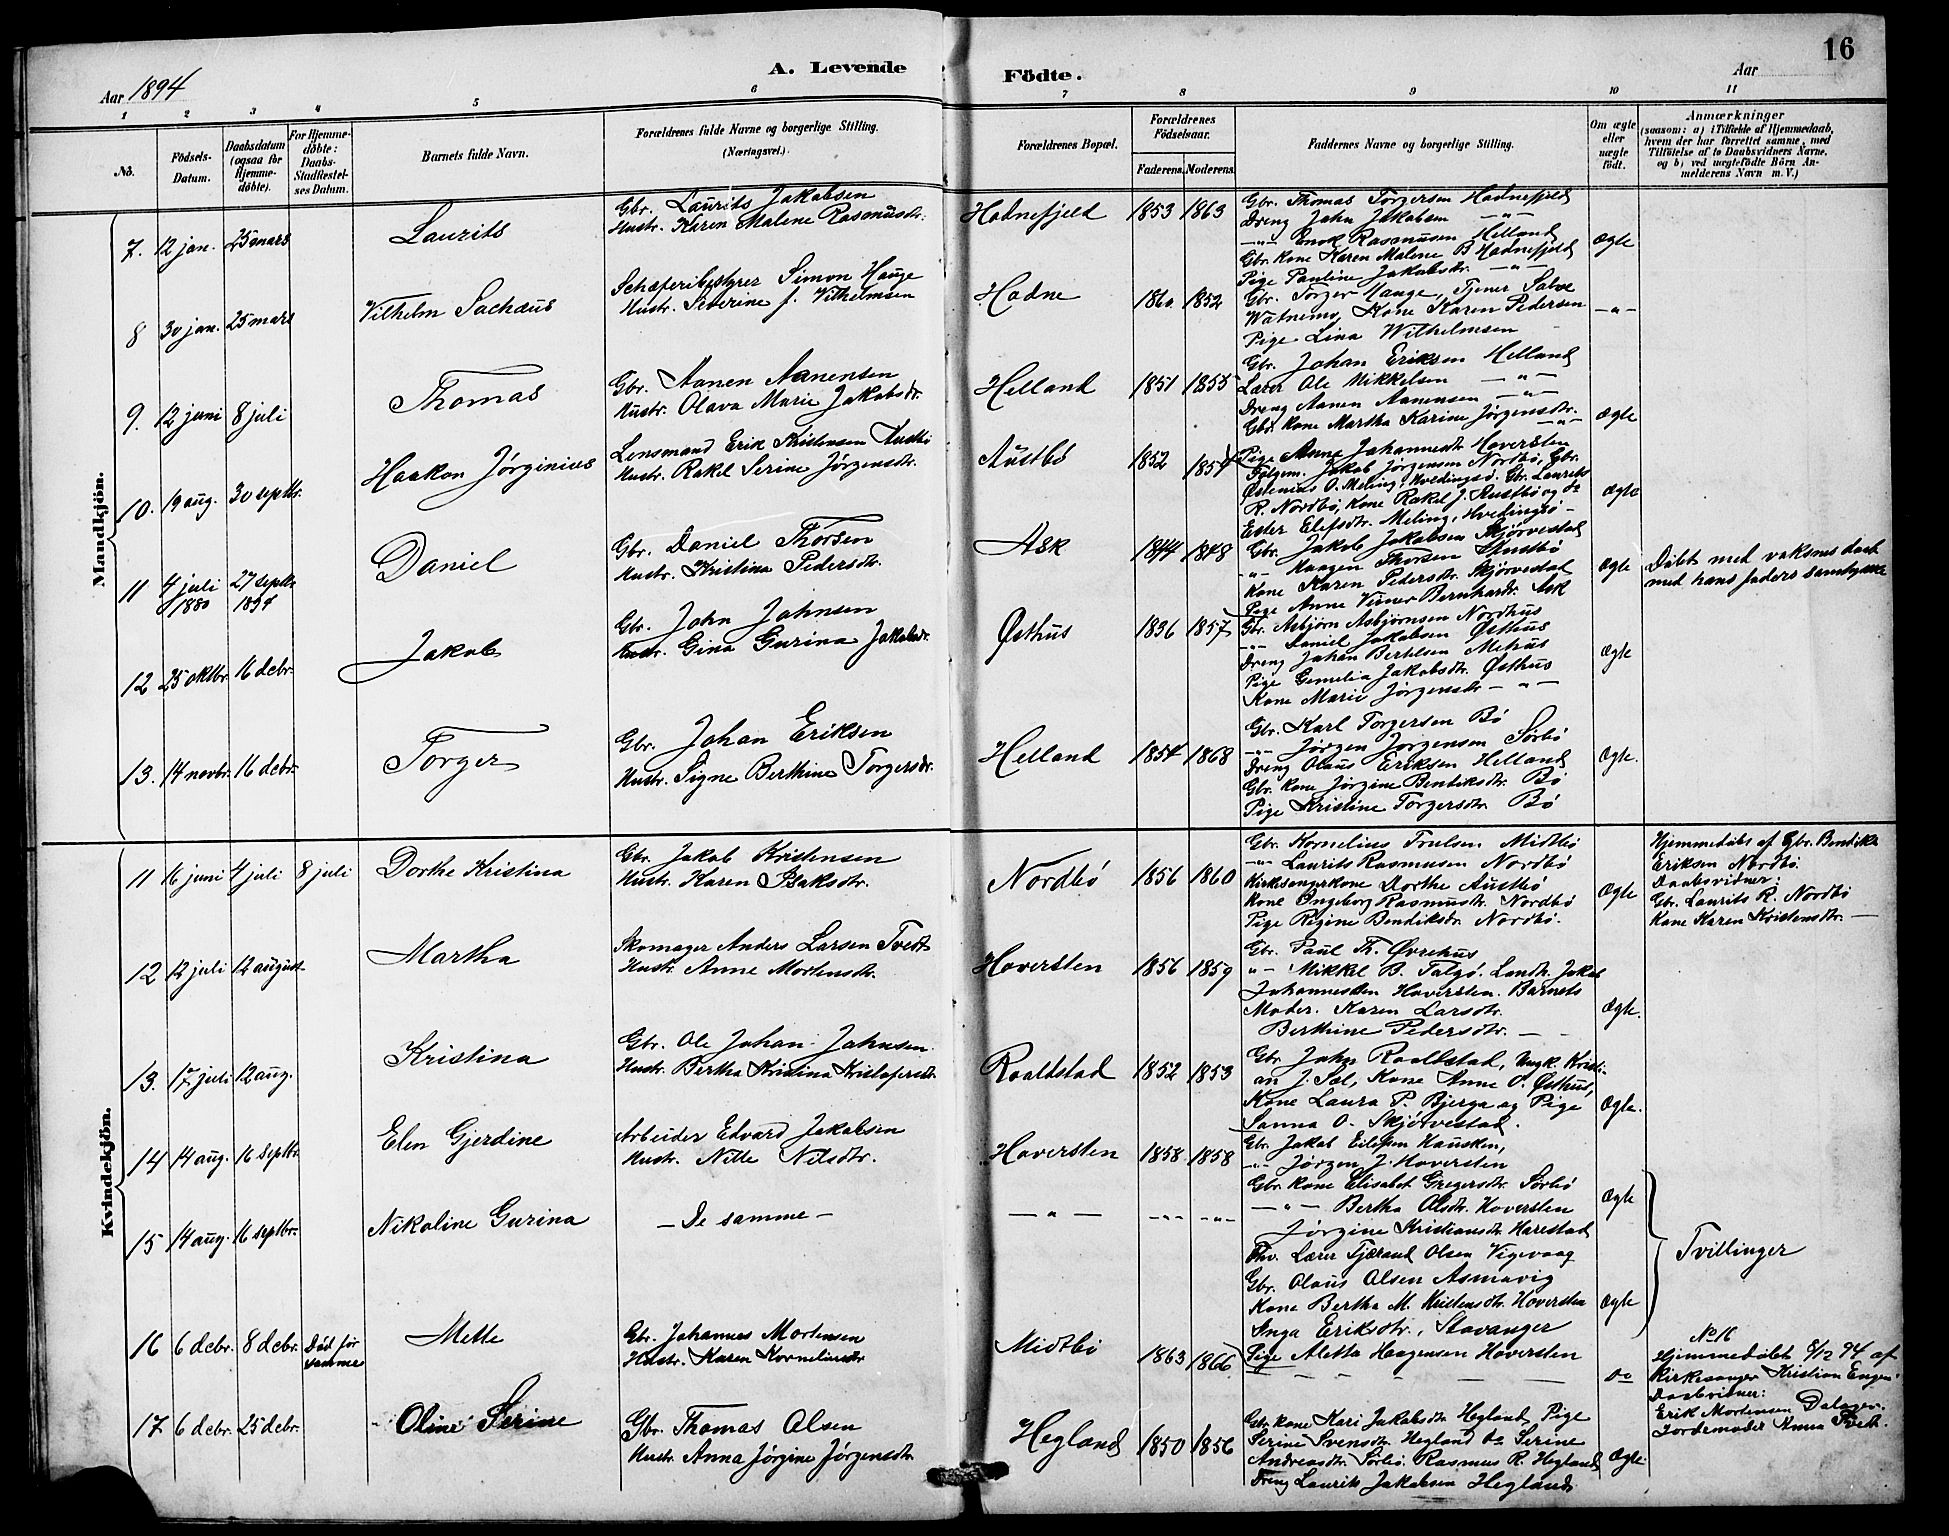 16
Aar 1894
A. Levende Födte.
Aar
1 2 3 4 5 6 7 8 9 10 11
No.
Födsels-Datum.
Daabsdatum (ogsaa for Hjemme-döbte).
For Hjemme-döbte: Daabs-Stadfestel-ses Datum.
Barnets fulde Navn.
Forældrenes fulde Navne og borgerlige Stilling. (Næringsvei.)
Forældrenes Bopæl.
Forældrenes Födselsaar.
Faderens. Moderens.
Faddernes Navne og borgerlige Stilling.
Om ægte eller uægte födt.
Anmærkninger
(saasom: a) i Tilfælde af Hjemmedaab, hvem der har forrettet samme, med Tilföielse af to Daabsvidners Navne, og b) ved uægtefödte Börn An-melderens Navn m. V.)
Mandkjön.
7. 12 jan. 25 mars Laurits
Gbr. Laurits Jakobsen
Hustr. Karen Malene Rasmusdr.
Hodnefjeld 1853 1863
Gbr. Thomas Torgersen Hodnefjeld
Dreng Jahn Jakobsen —"—
—"— Enok Rasmusen Helland
Gbr. kone Karen Malene B Hodnefjeld
Pige Pauline Jakobsdr. —"—
Ægte
8 30 jan. 25 mars Vilhelm Sachæus
Schæferibestyrer Simon Hauge
Hustr. Severine f. Vilhelmsen
Hodne 1860 1852
Gbr. Torger Hauge, Tjener Salve
Watnemo, Kone Karen Pedersen
Pige Lina Wilhelmsen
—"—
9. 12 juni 8 juli Thomas
Gbr. Aanen Aanensen
Hustr. Olava Marie Jakobsdr.
Helland 1851 1855
Gbr. Johan Eriksen Helland
Lærer Ole Mikkelsen —"—
Dreng Aanen Aanensen —"—
Gbr. kone Martha Karine Jørgensdtr. —"—
Pige Anne Johannesdr. Hoversten
Ægte
10. 19 aug. 30 septbr. Haakon Jørginius
Lensmand Erik Kristensen Austbø
Hustr. Rakel Serine Jørgensdtr.
Austbø 1852 1854
Følgem. Jakob Jørgensen Nordbø, Gbr.
Østenius O. Meling, Hvedingsø. Gbr. Laurits
R. Nordbø, Kone Rakel J. Austbø og do
Ester Elefsdtr. Meling, Hvedingsø
Ægte
11 4 juli 1880 27 septbr 1894 Daniel
Gbr. Daniel Thorsen
Hustr. Kristina Pedersdtr.
Ask 1844 1848
Gbr. Jakob Jakobsen Skjørvestad
—"— Haagen Thorsen Austbø
Kone Karen Pedersdtr. Skjørvestad
Pige Anne Verner Bernhardr. Ask
Ægte
Døbt med voksnes daab
med hans faders samtykke
12 25 oktbr. 16 debr. Jakob
Gbr. John Johnsen
Hustr. Gina Gurina Jakobsdr.
Østhus 1836 1857
Gbr. Asbjørn Asbjørnsen Nordhus
—"— Daniel Jakobsen Østhus
Dreng Johan Bertelsen Mekus
Pige Gemelia Jakobsdtr. Østhus
Kone Marie Jørgensdr —"—
Ægte
13. 14 novbr. 16 debr. Torger
Gbr. Johan Eriksen
Hustr. Signe Berthine Torgersdr.
Helland 1854 1868
Gbr. Karl Torgersen Bø
—"— Jørgen Jørgensen Sørbø
Dreng Olaus Eriksen Helland
Gbr. kone Jørgine Bendiksdtr. Bø
Pige Kristine Torgersdtr. Bø
Ægte.
Kvindekjön.
11 16 juni 4 juli 8 juli Dorthe Kristina
Gbr. Jakob Kristensen
Hustr. Karen Isaksdtr.
Nordbø 1856 1860
Gbr. Kornelius Trulsen Midtbø
—"— Laurits Rasmusen Nordbø
Kirkesangerkone Dorthe Austbø
Kone Ongeborg Rasmusdtr. Nordbø
Pige Regine Bendiksdr. Nordbø.
Ægte
Hjemmedøbt af Gbr. Bendik
Eriksen Nordbø.
Daabsvidner:
Gbr. Laurits R. Nordbø
Kone Karen Kristensdtr. —
12 12 juli 12 august Martha
Skomager Anders Larsen Tvedt
Hustr. Anne Mortensdtr.
Hoversten 1856 1859
Gbr. Paul Th. Øvrehus
"— Mikkel B. Talgø. Landh. Jakob
Johannessen Hoversten. Barnets
Moder. Karen Larsdtr.
Berthine Pedersdtr. —
Ægte.
13. 17 juli 12 aug. Kristina
Gbr. Ole Johan Johnsen
Hustr. Bertha Kristina Kristofersdtr.
Roaldstad 1852 1853
Gbr. John Roaldstad, Ungk. Kristi-
an J. Sæl, Kone Anne O. Østhus,
Kone Laura P. Bjerga og Pige
Sanna O. Skjørvestad.
Ægte.
14 14 aug. 16 septbr. Elen Gjerdine
Arbeider Edvard Jakobsen
Hustr. Nille Nilsdtr.
Hoversten 1858 1858
Gbr. Jakob Eilefsen Hausken,
—"— Jørgen J. Hoversten
Gbr. kone Elisabet Gregersdtr. Sørbø
—"— Bertha Olsdtr. Hoversten
Jørgine Kristiansdtr Harestad
Ægte
15 14 aug. 16 septbr. Nikoline Gurina
— De samme —
—"— —"— —"—
Thv. Lærer Tjærand Olsen Vigevaag
Gbr. Olaus Olsen Asmarvig
Kone Bertha M. Kristensdtr. Hoversten
Inga Eriksdtr., Stavanger
Pige Aletta Haagensen Hoversten
Ægte
Tvillinger
16 6 debr. 8 debr. Død før samme Mette
Gbr. Johannes Mortensen
Hustr. Karen Korneliusdr
Midtbø 1863 1866
— — — — — —
do
No 16
Hjemmedøbt 8/12 94 af
Kirkesanger Kristian Engen.
Daabsvidner:
Erik Mortensen Dalagen.
Jordemoder Anna Tvedt.
17 6 debr. 25 debr. Oline Serine
Gbr. Thomas Olsen
Hustr. Anna Jørgine Jørgensdtr.
Hegland 1850 1856
Gbr. kone Kari Jakobsdtr Hegland, Pige
Serine Svensdtr. Hegland do Serine
Andreasdtr. Sørbø, Rasmus R. Hegland
Dreng Laurits Jakobsen Hegland.
Ægte